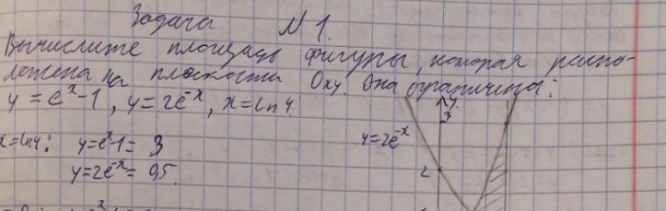 Задача N 1.
Вычислите площадь фигуры, которая распо-
ложена на плоскости Oxy. Она ограничена:
y = e^x - 1, y = 2e^-x, x = ln 4.
x = ln 4: y = e^x - 1 = 3
y = 2e^-x = 0,5.
y
3
y = 2e^-x
2